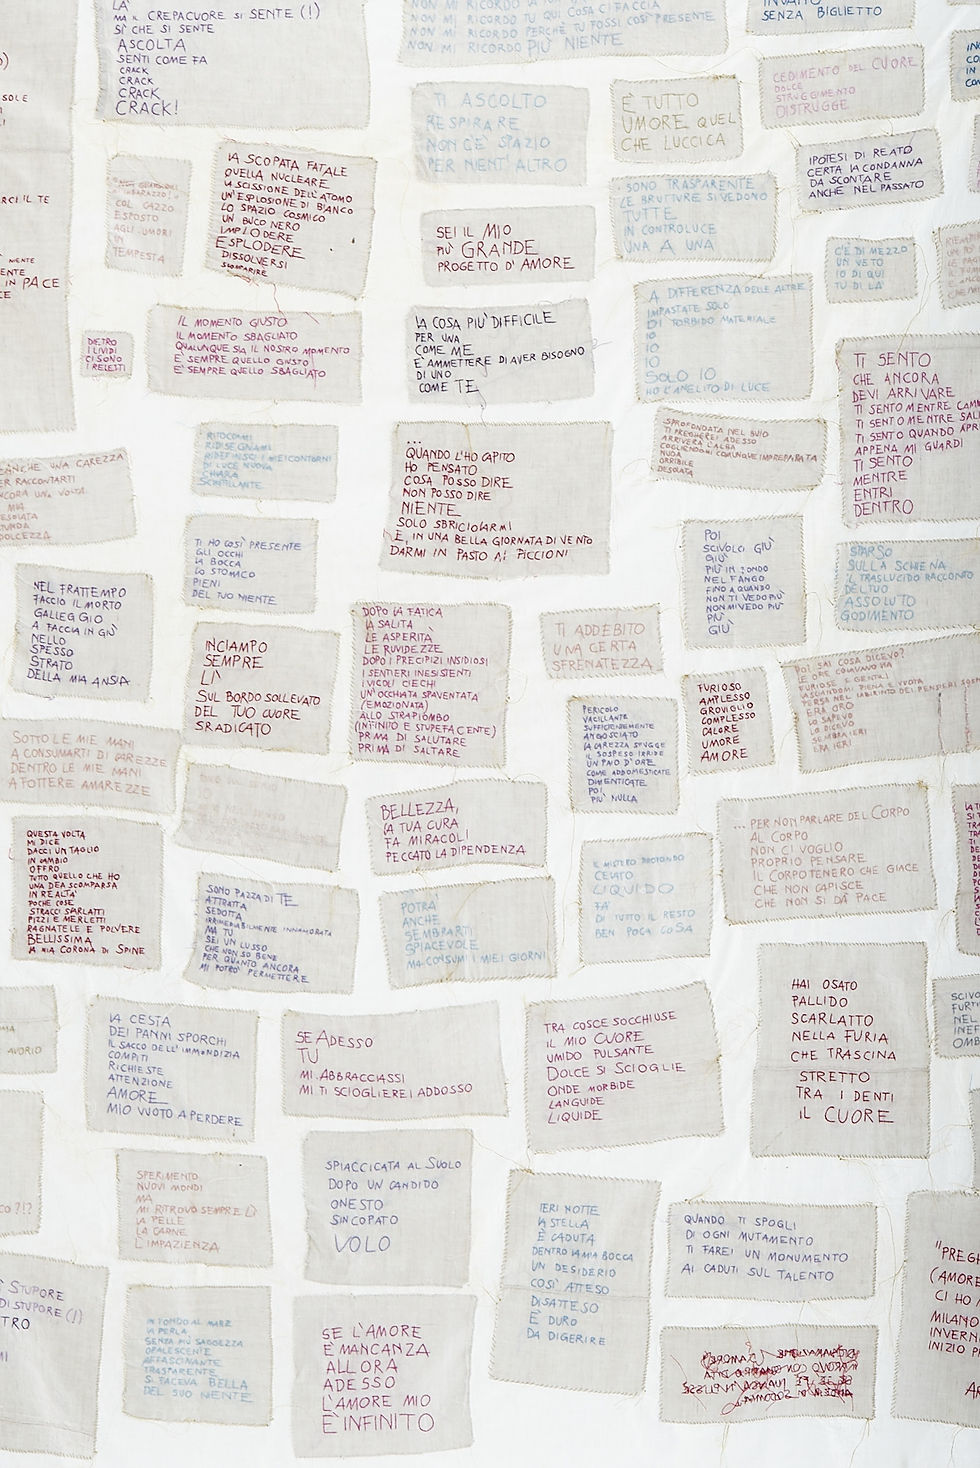 LÀ
MA IL CREPACUORE SI SENTE (!)
SÌ CHE SI SENTE
ASCOLTA
SENTI COME FA
CRACK
CRACK
CRACK
CRACK!
NON MI RICORDO TU QUI COSA CI FACCIA
NON MI RICORDO PERCHÉ TU FOSSI COSÌ PRESENTE
NON MI RICORDO PIÙ NIENTE
SENZA BIGLIETTO
TI ASCOLTO
RESPIRARE
NON C'È SPAZIO
PER NIENT'ALTRO
È TUTTO
UMORE QUEL
CHE LUCCICA
CEDIMENTO DEL CUORE
DOLCE
STRUGGIMENTO
DISTRUGGE
IPOTESI DI REATO
CERTA LA CONDANNA
DA SCONTARE
ANCHE NEL PASSATO
COL CAZZO
ESPOSTO
AGLI UMORI
IN
TEMPESTA
LA SCOPATA FATALE
QUELLA NUCLEARE
LA SCISSIONE DELL'ATOMO
UN'ESPLOSIONE DI BIANCO
LO SPAZIO COSMICO
UN BUCO NERO
IMPLODERE
ESPLODERE
DISSOLVERSI
SCOMPARIRE
SEI IL MIO
PIÙ GRANDE
PROGETTO D'AMORE
SONO TRASPARENTE
LE BRUTTURE SI VEDONO
TUTTE
IN CONTROLUCE
UNA A UNA
C'È DI MEZZO
UN VETO
IO DI QUI
TU DI LÀ
DIETRO
I LIVIDI
CI SONO
I RELITTI
IL MOMENTO GIUSTO
IL MOMENTO SBAGLIATO
QUALUNQUE SIA IL NOSTRO MOMENTO
È SEMPRE QUELLO GIUSTO
È SEMPRE QUELLO SBAGLIATO
LA COSA PIÙ DIFFICILE
PER UNA
COME ME
È AMMETTERE DI AVER BISOGNO
DI UNO
COME TE
A DIFFERENZA DELLE ALTRE
IMPASTATE SOLO
DI TORBIDO MATERIALE
IO
IO
IO
IO
SOLO IO
HO L'ANELITO DI LUCE
TI SENTO
CHE ANCORA
DEVI ARRIVARE
TI SENTO MENTRE
TI SENTO MENTRE
TI SENTO QUANDO
APPENA MI GUARDI
TI SENTO
MENTRE
ENTRI
DENTRO
NEANCHE UNA CAREZZA
PER RACCONTARTI
ANCORA UNA VOLTA
MIA
DOLCEZZA
RITOCCAMI
RIDISEGNAMI
RIDEFINISCI I MIEI CONTORNI
DI LUCE NUOVA
CHIARA
SCINTILLANTE
...
QUANDO L'HO CAPITO
HO PENSATO
COSA POSSO DIRE
NON POSSO DIRE
NIENTE
SOLO SBRICIOLARMI
E, IN UNA BELLA GIORNATA DI VENTO
DARMI IN PASTO AI PICCIONI
SPROFONDATA NEL BUIO
TI PREGHEREI ADESSO
ARRIVERÀ L'ALBA
COGLIENDOMI COMUNQUE IMPREPARATA
NUDA
ORRIBILE
DESOLATA
TI HO COSÌ PRESENTE
GLI OCCHI
LA BOCCA
LO STOMACO
PIENI
DEL TUO NIENTE
POI
SCIVOLO GIÙ
GIÙ
PIÙ IN FONDO
NEL FANGO
FINO A QUANDO
NON TI VEDO PIÙ
NON MI VEDO PIÙ
PIÙ
GIÙ
SPARSO
SULLA SCHIENA
IL TRASLUCIDO RACCONTO
DEL TUO
ASSOLUTO
GODIMENTO
NEL FRATTEMPO
FACCIO IL MORTO
GALLEGGIO
A FACCIA IN GIÙ
NELLO
SPESSO
STRATO
DELLA MIA ANSIA
INCIAMPO
SEMPRE
LÌ
SUL BORDO SOLLEVATO
DEL TUO CUORE
SRADICATO
DOPO LA FATICA
LA SALITA
LE ASPERITÀ
LE RUVIDEZZE
DOPO I PRECIPIZI INSIDIOSI
I SENTIERI INESISTENTI
I VICOLI CIECHI
UN'OCCHIATA SPAVENTATA
(EMOZIONATA)
ALLO STRAPIOMBO
(INFINITO E STUPEFACENTE)
PRIMA DI SALUTARE
PRIMA DI SALTARE
TI ADDEBITO
UNA CERTA
SFRENATEZZA
PERICOLO
VACILLANTE
SUFFICIENTEMENTE
ANGOSCIATO
LA CAREZZA SFUGGE
IL SOSPESO IRRIDE
UN PAIO D'ORE
COME ADDOMESTICATE
DIMENTICATE
POI
PIÙ NULLA
FURIOSO
AMPLESSO
GROVIGLIO
COMPLESSO
CALORE
UMORE
AMORE
POI SAI COSA DICEVO?
ERA ORO
LO SAPEVO
LO DICEVO
SEMBRA IERI
ERA IERI
SOTTO LE MIE MANI
A CONSUMARTI DI CAREZZE
DENTRO LE MIE MANI
A FOTTERE AMAREZZE
QUESTA VOLTA
MI DICE
DACCI UN TAGLIO
IN CAMBIO
OFFRO
TUTTO QUELLO CHE HO
UNA DEA SCOMPARSA
IN REALTÀ
POCHE COSE
STRACCI SCARLATTI
PIZZI E MERLETTI
RAGNATELE E POLVERE
BELLISSIMA
LA MIA CORONA DI SPINE
BELLEZZA,
LA TUA CURA
FA MIRACOLI
PECCATO LA DIPENDENZA
... PER NON PARLARE DEL CORPO
AL CORPO
NON CI VOGLIO
PROPRIO PENSARE
IL CORPO TENERO CHE GIACE
CHE NON CAPISCE
CHE NON SI DÀ PACE
SONO PAZZA DI TE
ATTRATTA
SEDOTTA
IRRIMEDIABILMENTE INNAMORATA
MA TU
SEI UN LUSSO
CHE NON SO BENE
PER QUANTO ANCORA
MI POTRÒ PERMETTERE
POTRÀ
ANCHE
SEMBRARTI
SPIACEVOLE
MA CONSUMI I MIEI GIORNI
IL MISTERO PROFONDO
CELATO
LIQUIDO
FA
DI TUTTO IL RESTO
BEN POCA COSA
HAI OSATO
PALLIDO
SCARLATTO
NELLA FURIA
CHE TRASCINA
STRETTO
TRA I DENTI
IL CUORE
AVORIO
LA CESTA
DEI PANNI SPORCHI
IL SACCO DELL'IMMONDIZIA
COMPITI
RICHIESTE
ATTENZIONE
AMORE
MIO VUOTO A PERDERE
SE ADESSO
TU
MI ABBRACCIASSI
MI TI SCIOGLIEREI ADDOSSO
TRA COSCE SOCCHIUSE
IL MIO CUORE
UMIDO PULSANTE
DOLCE SI SCIOGLIE
ONDE MORBIDE
LANGUIDE
LIQUIDE
SPERIMENTO
NUOVI MONDI
MA
MI RITROVO SEMPRE LÌ
LA PELLE
LA CARNE
L'IMPAZIENZA
SPIACCICATA AL SUOLO
DOPO UN CANDIDO
ONESTO
SINCOPATO
VOLO
IERI NOTTE
LA STELLA
È CADUTA
DENTRO LA MIA BOCCA
UN DESIDERIO
COSÌ ATTESO
DISATTESO
È DURO
DA DIGERIRE
QUANDO TI SPOGLI
DI OGNI MUTAMENTO
TI FAREI UN MONUMENTO
AI CADUTI SUL TALENTO
STUPORE
DI STUPORE (!)
IN FONDO AL MARE
LA PERLA
SENZA PIÙ SAGGEZZA
OPALESCENTE
AFFASCINANTE
TRASPARENTE
SI FACEVA BELLA
DEL SUO NIENTE
SE L'AMORE
È MANCANZA
ALLORA
ADESSO
L'AMORE MIO
È INFINITO
(AMORE
CI HO
MILANO
INIZIO